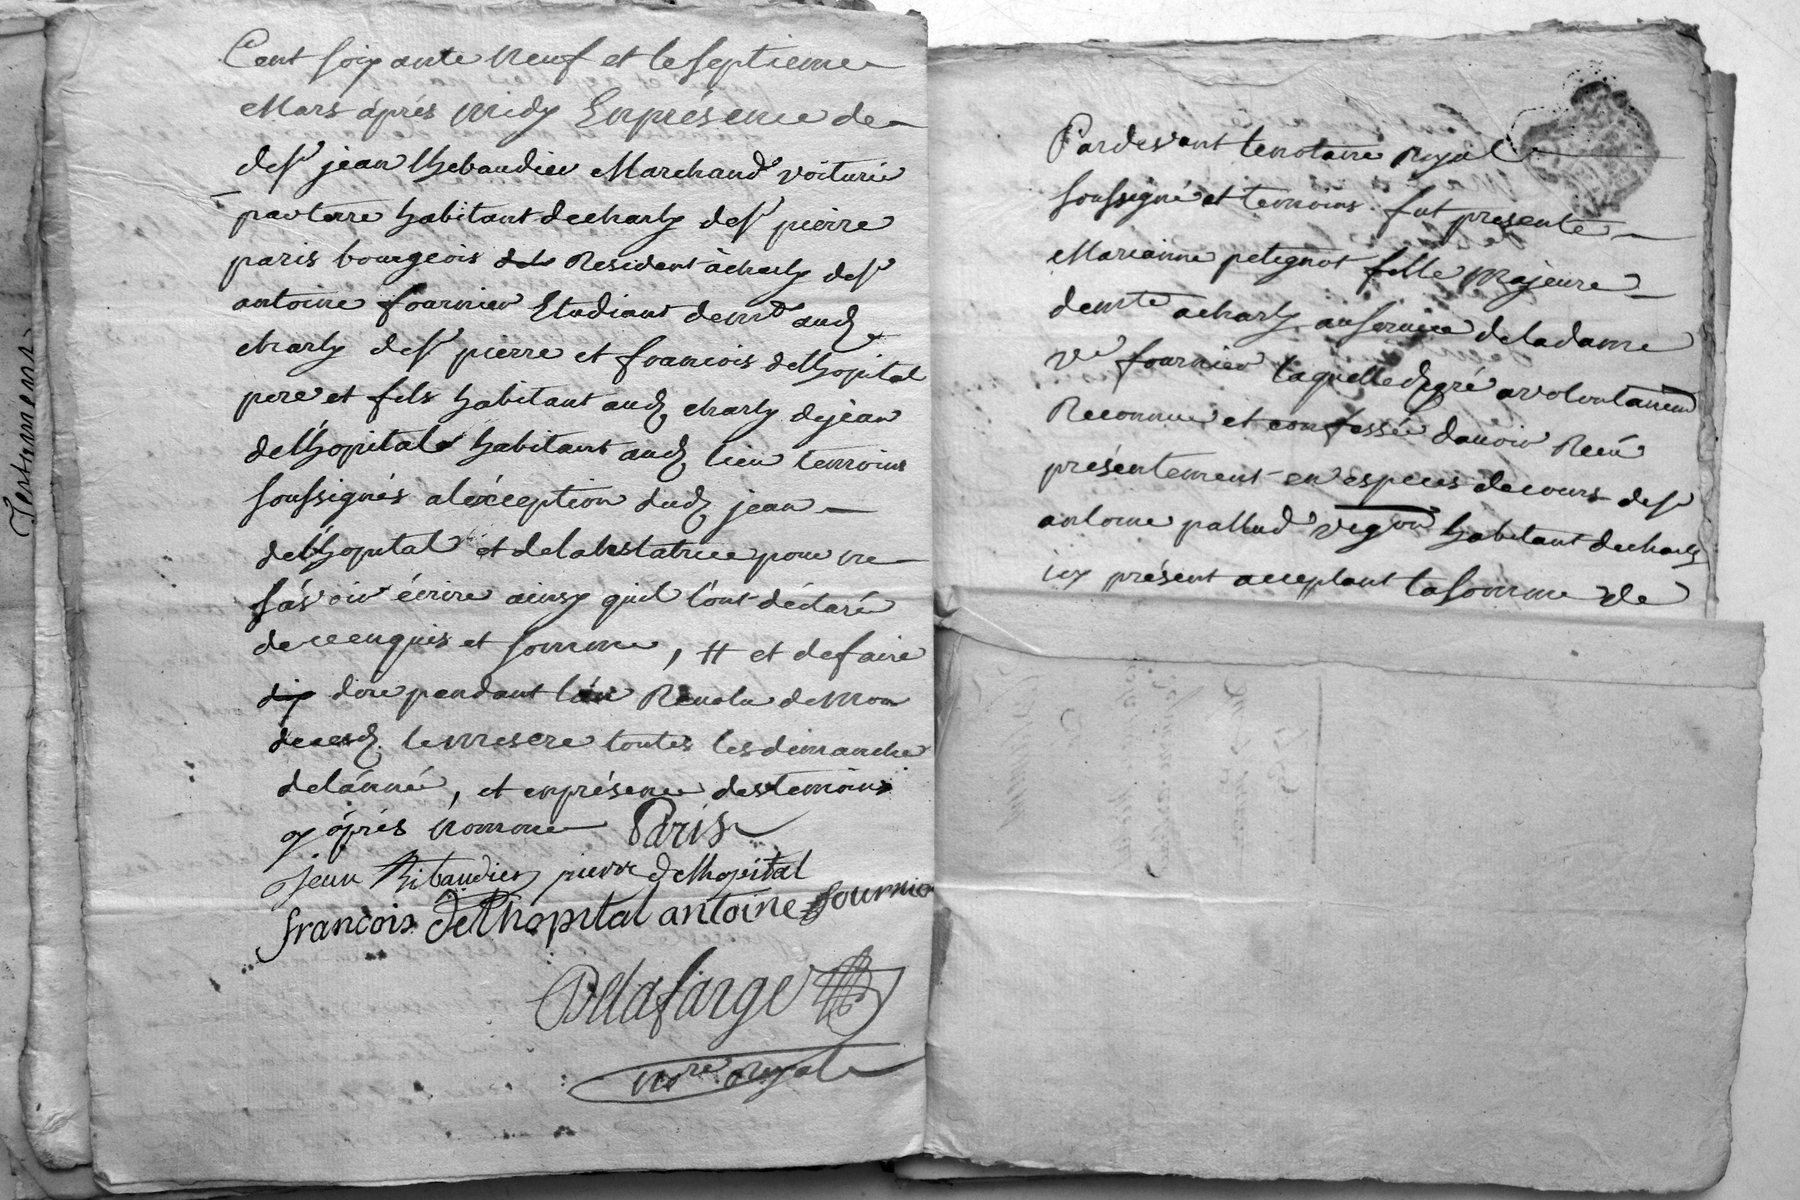 Testament
Cent soixante neuf et le septieme
Mars áprés midy Enprésence de
de sr jean thebaudier Marchand voiturié
par terre habitant decharly de sr pierre
paris bourgeois Resident àcharly de sr
antoine fournier Etudiant demt aud
charly de sr pierre et francois delhopital
pere et fils habitant aud charly dejean
delhopital habitant aud lieu temoins
soussignés aléxception dud jean
delhopital et delatestatrice pour ne
sávoir écrire ainsy quil lont déclaré
de ce enquis et somme, # et defaire
dire pendant lán Revolu de mon
deced le miserere toutes les dimanche
delánné, et enprésence destemoins
y áprés nomme Paris
jean Thibaudier pierre delhopital
francois delhopital antoine fournier
Delafarge
nore royal
Pardevant lenotaire royal
soussigné et temoins fut presente
Marianne petignot fille majeure
demte acharly auservice deladame
ve fournier laquelle degré avolontairemt
Reconnue et confessée davoir Receü
présentement en especes decours de sr
antoine pallud vigon habitant decharly
icy présent acceptant lasomme de